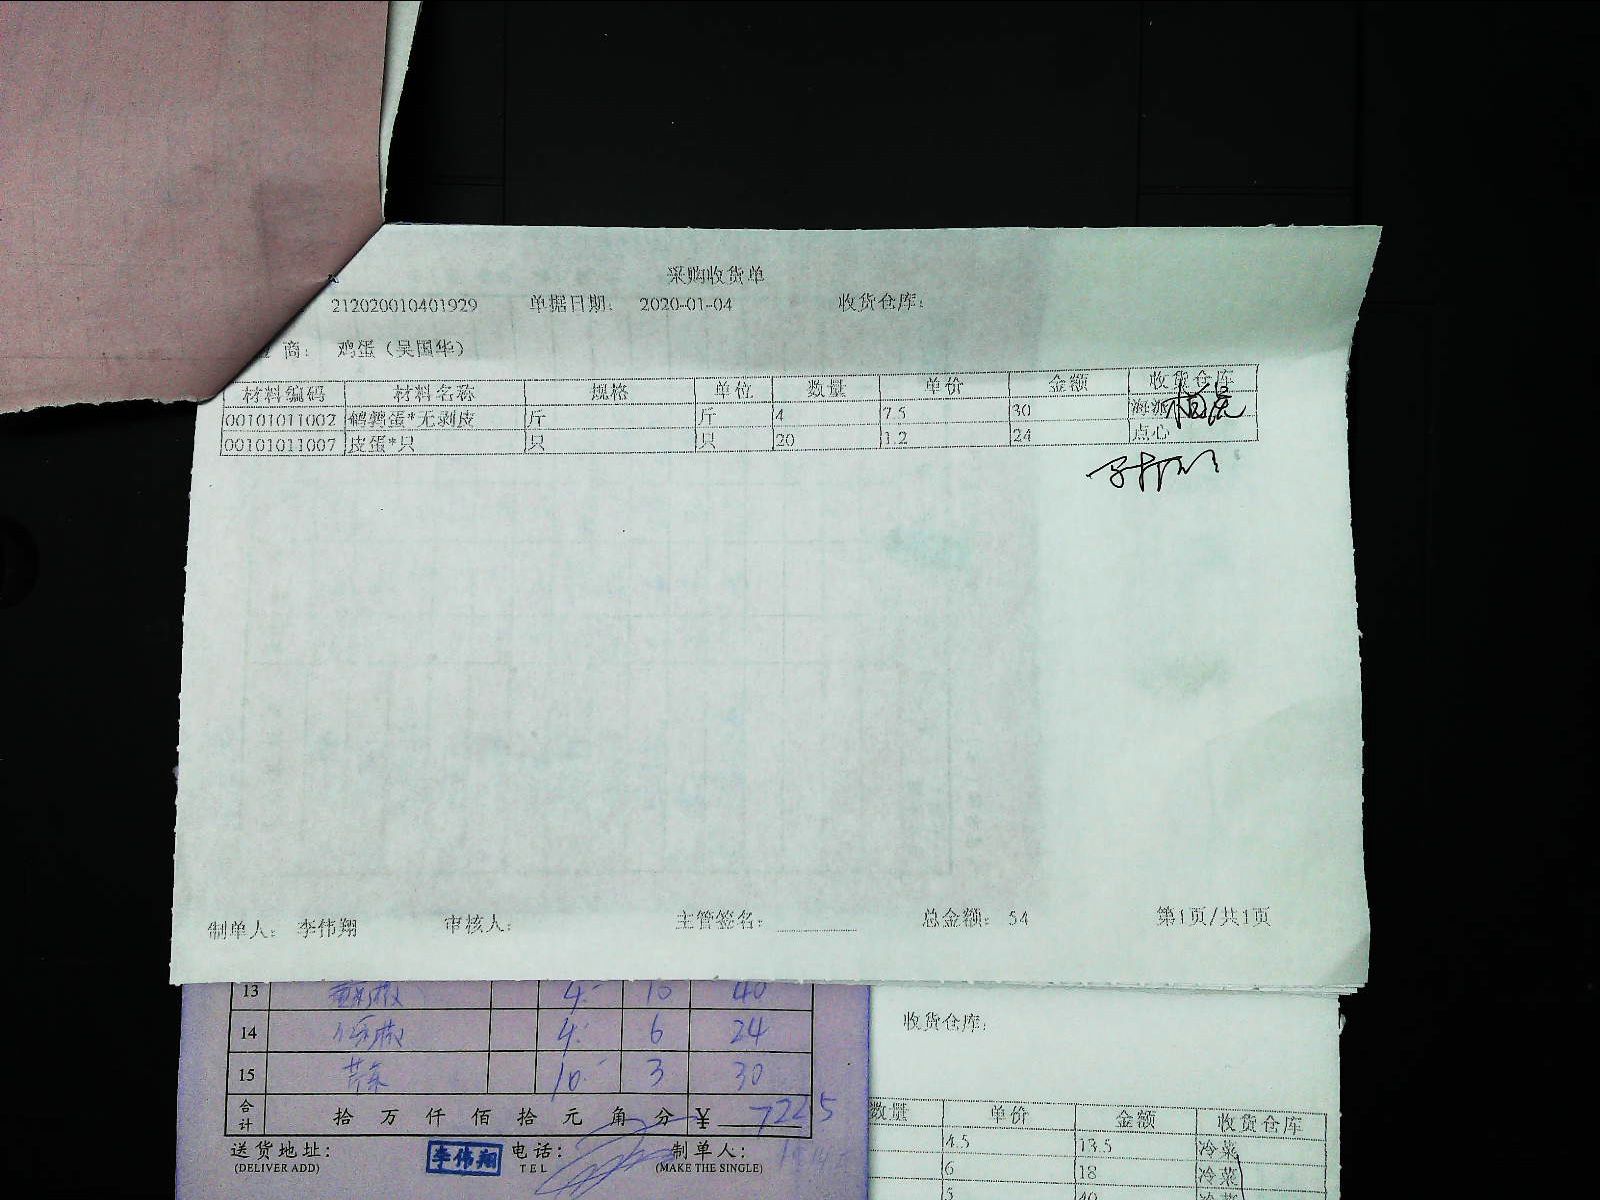 采购收货单
212020010401929 单据日期: 2020-01-04 收货仓库:
商: 鸡蛋（吴国华）
材料编码 材料名称 规格 单位 数量 单价 金额 收货仓库
00101011002 鹌鹑蛋*无剥皮 斤 斤 4 7.5 30
00101011007 皮蛋*只 只 只 20 1.2 24 点心
制单人: 李伟翔 审核人: 主管签名: 总金额: 54 第1页/共1页
13 4 10 40
14 4 6 24
15 10 3 30
合计 拾 万 仟 佰 拾 元 角 分 ¥ 722.5
送货地址: 李伟翔 电话: 制单人:
(DELIVER ADD) TEL (MAKE THE SINGLE)
收货仓库:
数量 单价 金额 收货仓库
4.5 13.5 冷菜
6 18 冷菜
5 40 冷菜